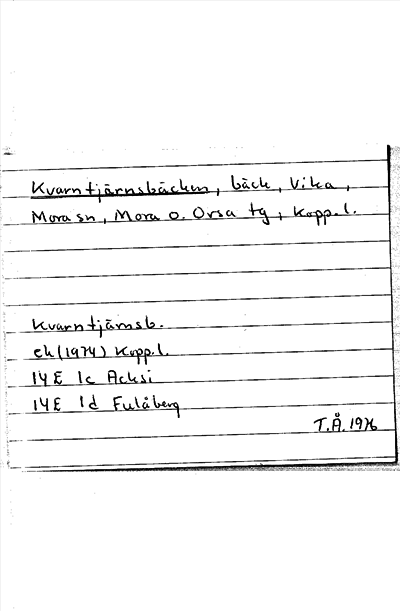 Kvarntjärnsbäcken, bäck, Vika,
Mora sn, Mora o. Orsa tg, Kopp. l.
Kvarntjärnsb.
ek (1974) Kopp. l.
14E 1c Acksi
14E 1d Fulåberg
T.Å. 1976